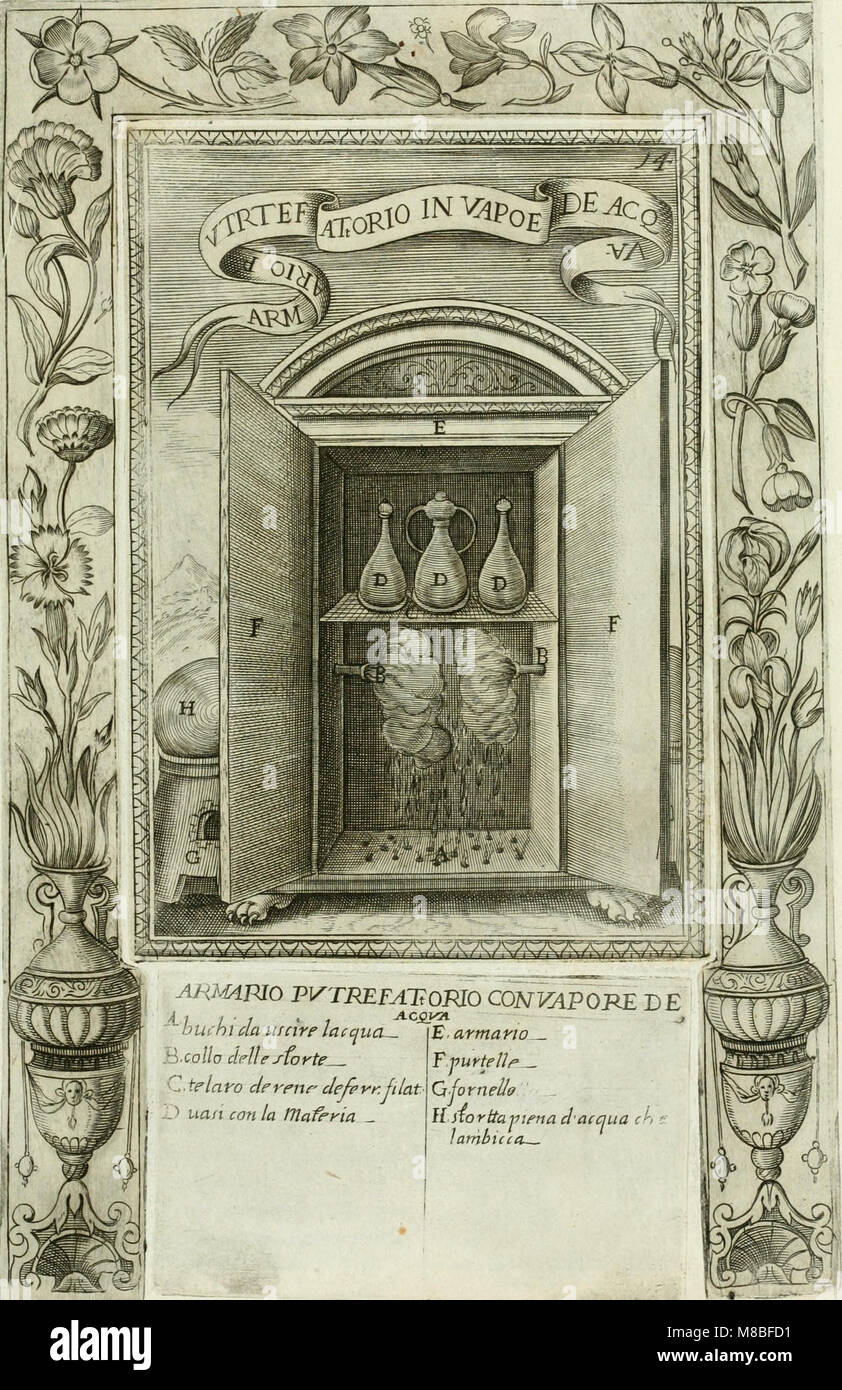 14
ARMARIO PVTRTEFAT:ORIO IN VAPOE DE ACQVA·
E
D D D
C
F F
B B
H
G
A
ARMARIO PVTREFAT:ORIO CON VAPORE DE
ACQVA
A buchi da uscire lacqua
B. collo delle storte
C. telaro de rene de ferr. filat
D uasi con la Materia
E. armario
F. purtelle
G. fornello
H. stortta piena d'acqua che
lambicca
alamy
Image ID: M8BFD1
www.alamy.com